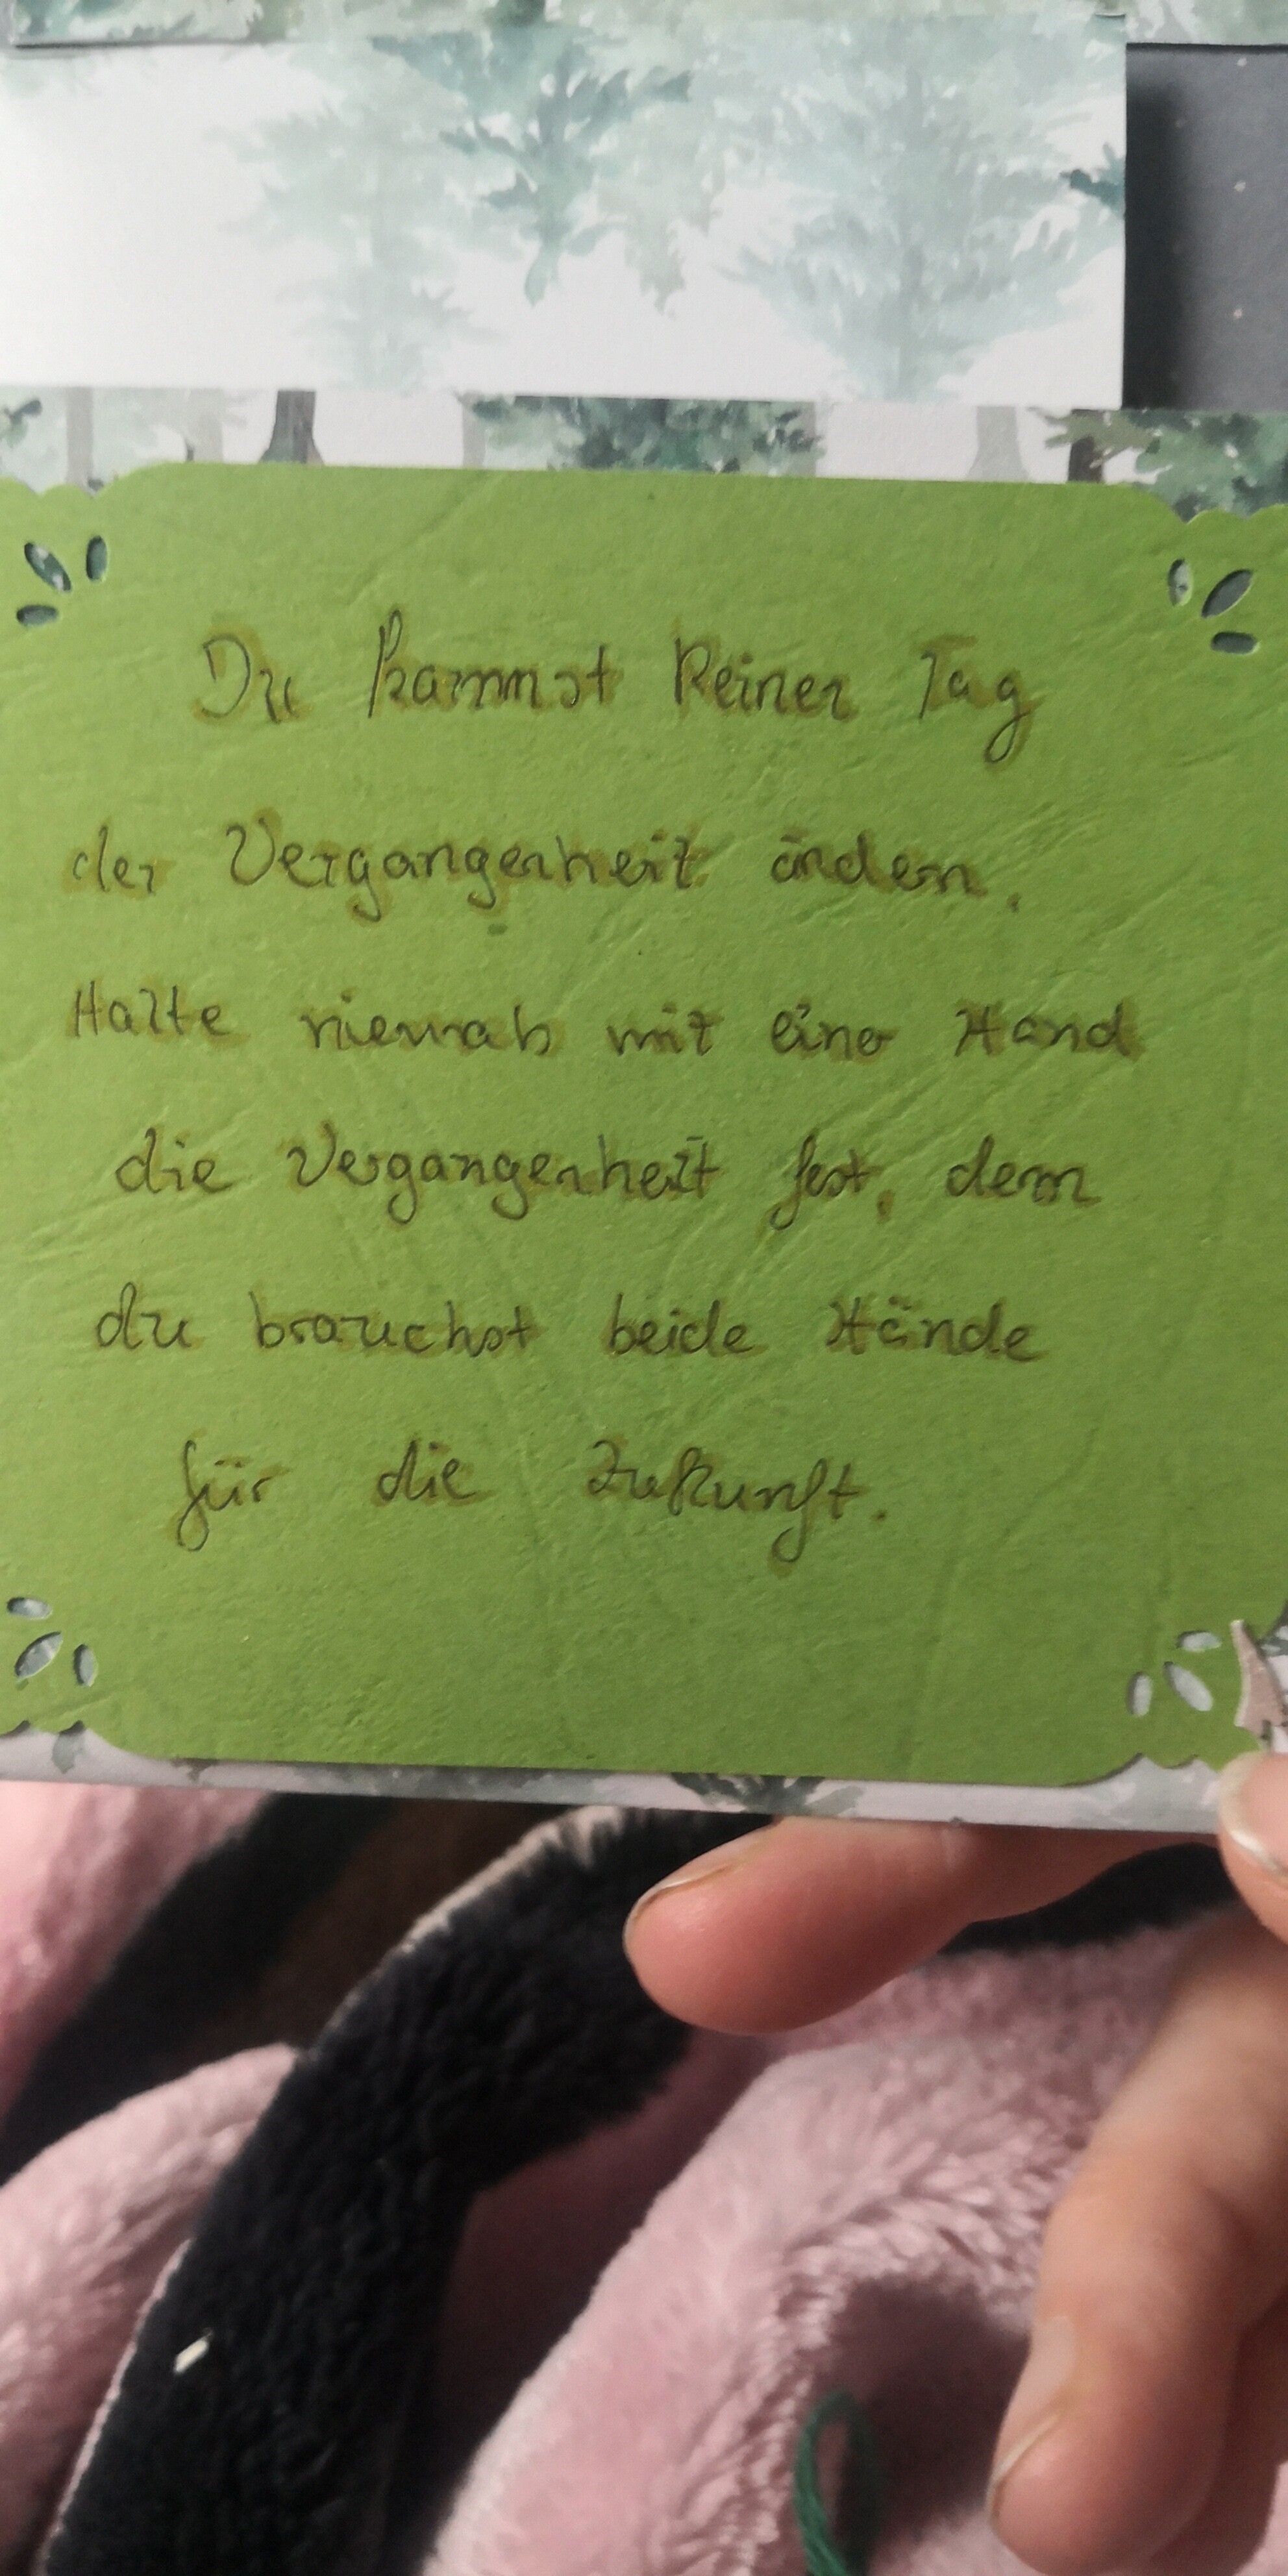 Du kannst keinen Tag
der Vergangenheit ändern.
Halte niemals mit einer Hand
die Vergangenheit fest, denn
du brauchst beide Hände
für die Zukunft.